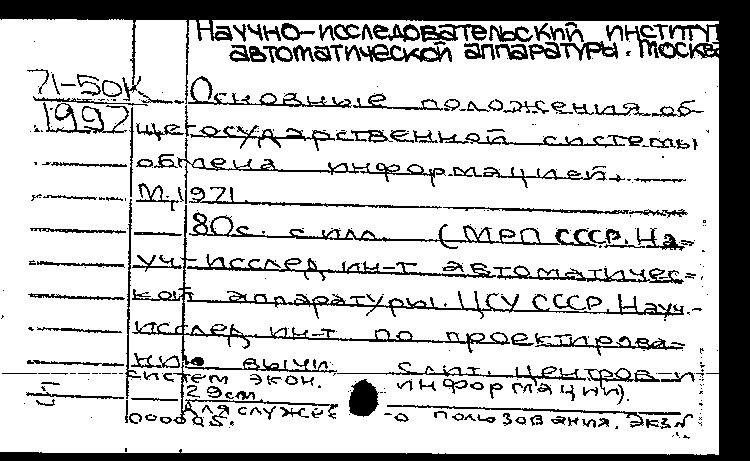 Научно-исследовательский институт
автоматической аппаратуры. Москва
71-50К Основные положения об-
1997 щегосударственной системы
обмена информацией.
М, 1971.
80с. с илл. (МРП СССР. На-
уч-исслед. ин-т автоматичес-
кой аппаратуры. ЦСУ СССР. Науч.-
исслед. ин-т по проектирова-
нию вычи слит. центров и
систем экон. информации).
29см.
Для служеб -о пользования. Экз.N
000005.